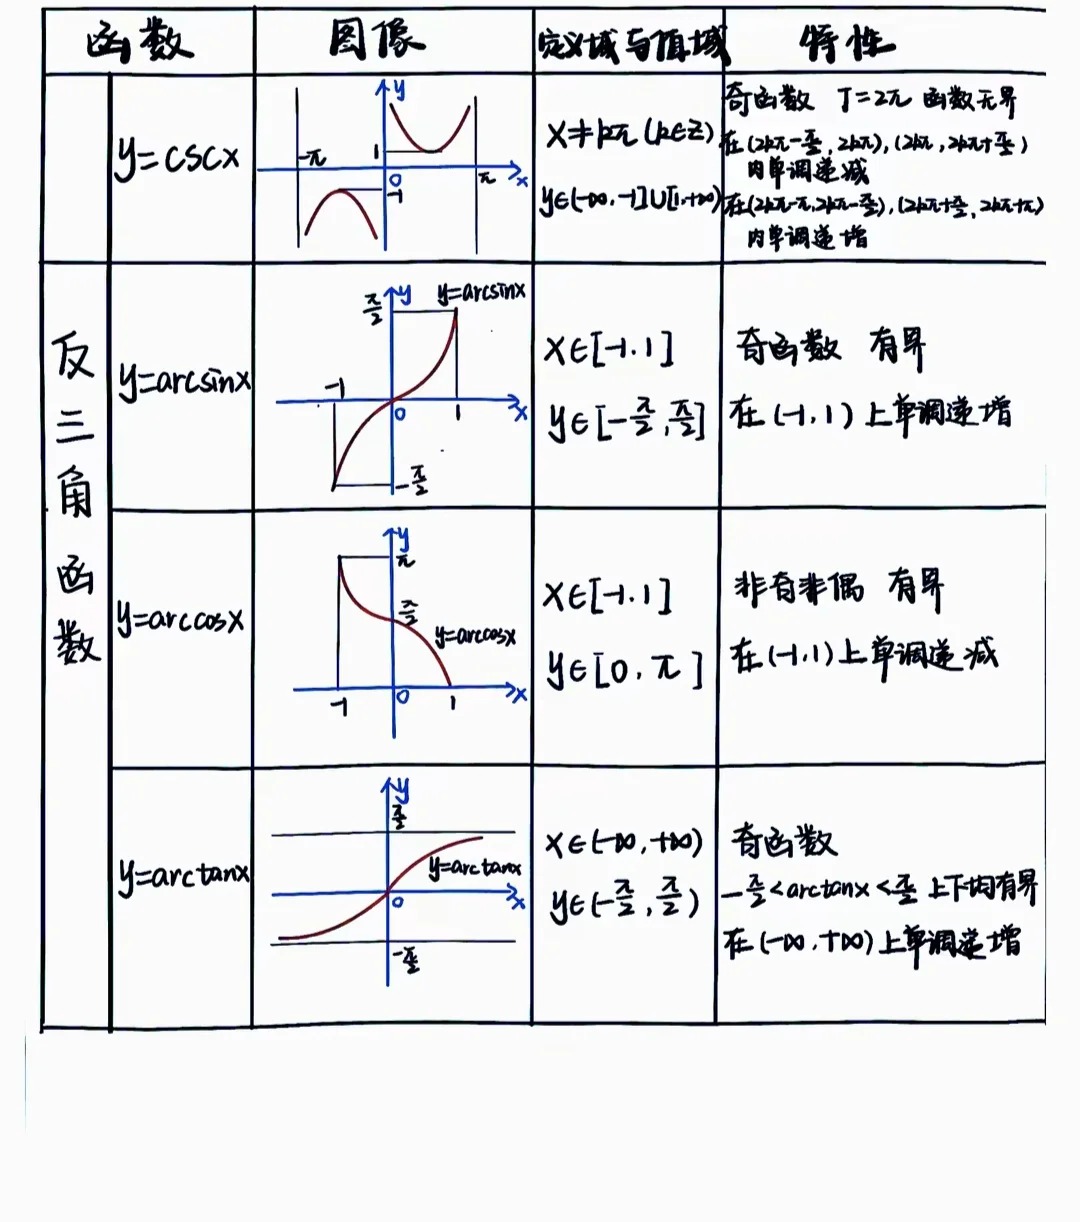 函数 图像 定义域与值域 特性
y=cscx
y
1
-π 0 π x
-1
x≠kπ (k∈Z)
y∈(-∞,-1]∪[1,+∞)
奇函数 T=2π 函数无界
在(2kπ-π/2, 2kπ), (2kπ, 2kπ+π/2)
内单调递减
在(2kπ-π, 2kπ-π/2), (2kπ+π/2, 2kπ+π)
内单调递增
反三角函数
y=arcsinx
π/2 y y=arcsinx
-1 0 1 x
-π/2
x∈[-1,1]
y∈[-π/2, π/2]
奇函数 有界
在(-1,1)上单调递增
y=arccosx
y
π
π/2
y=arccosx
-1 0 1 x
x∈[-1,1]
y∈[0,π]
非奇非偶 有界
在(-1,1)上单调递减
y=arctanx
y
π/2
y=arctanx
0 x
-π/2
x∈(-∞,+∞)
y∈(-π/2, π/2)
奇函数
-π/2<arctanx<π/2 上下均有界
在(-∞,+∞)上单调递增